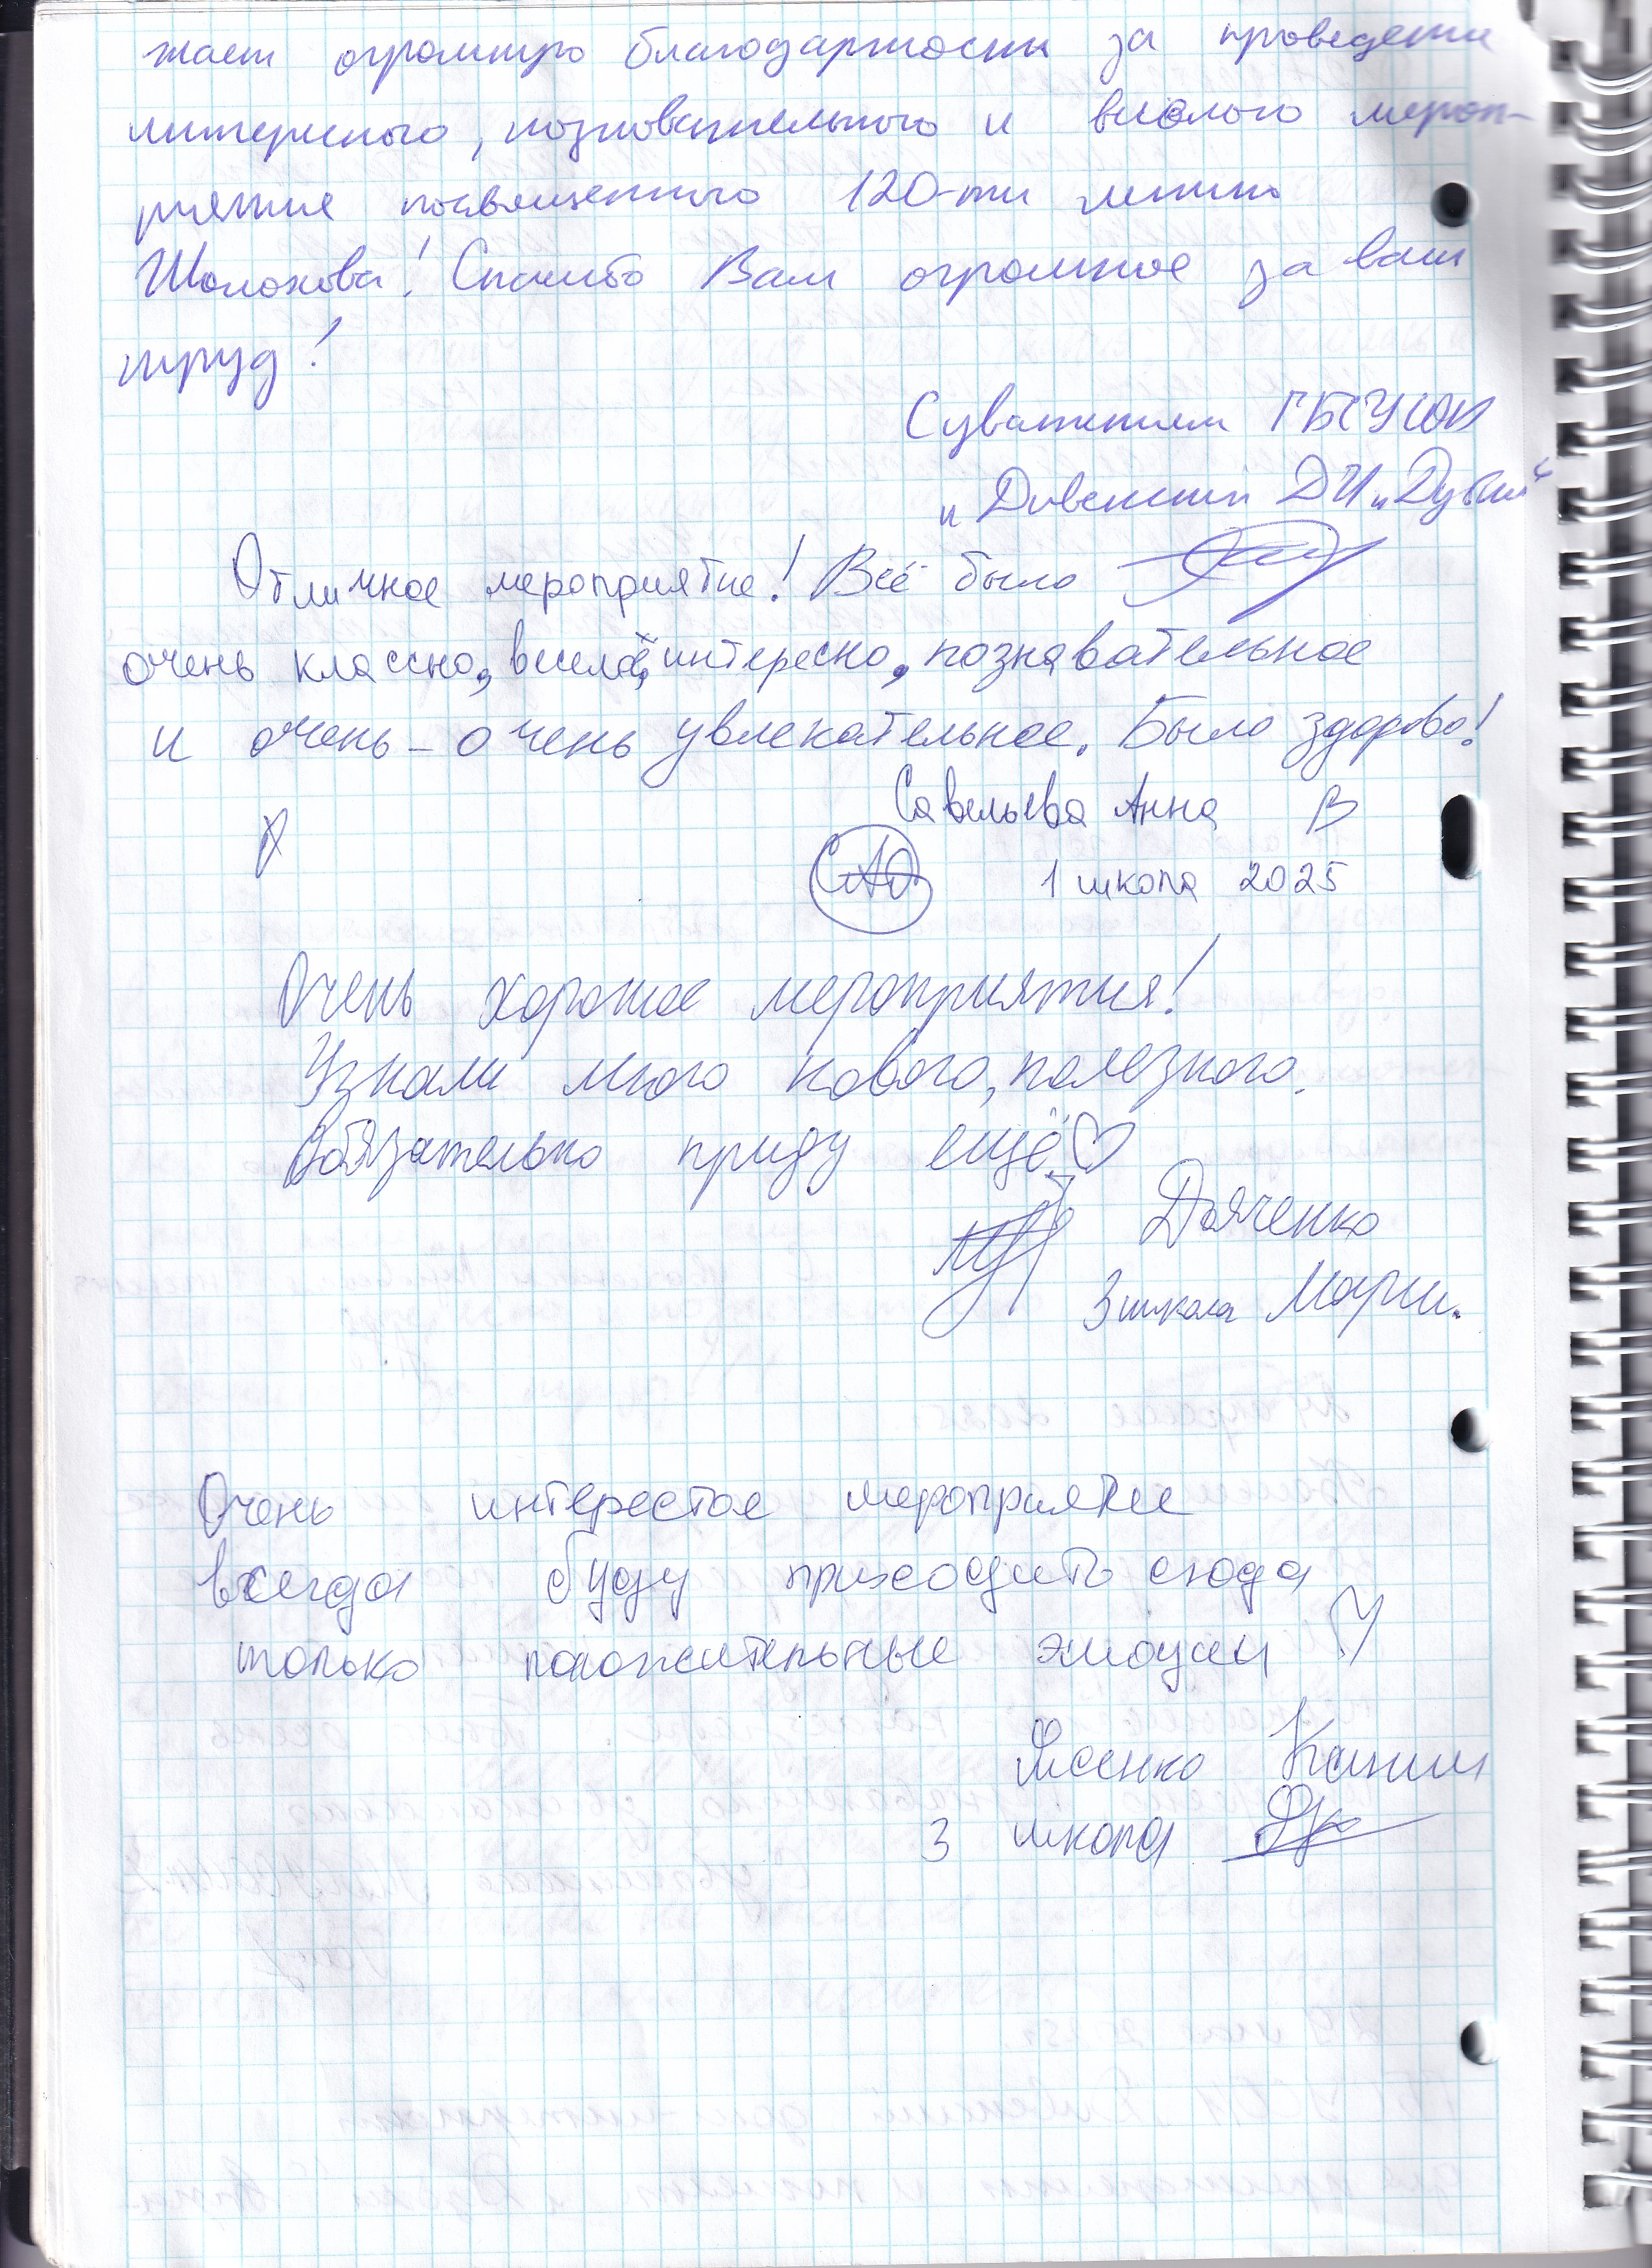 жает огромную благодарности за проведения
интересного, познавательного и веселого мероп-
риятия посвященного 120-ти летию
Шолохова! Спасибо Вам огромное за ваш
труд!
С уважением ГБСУСОН
"Дивенский ДИ "Дубки"
Отличное мероприятие! Всё было
очень классно, весело, интересно, познавательное
и очень-очень увлекательное. Было здорово!
Савельева Анна В
САО 1 школа 2025
Очень хорошое мероприятия!
Узнали много нового, полезного.
Обязательно приду ещё ♡
Дьяченко
3 школа Марии.
Очень интерестое мероприятие
всегда буду приходить сюда
только положительные эмоции ♡
Ксении
3 школа